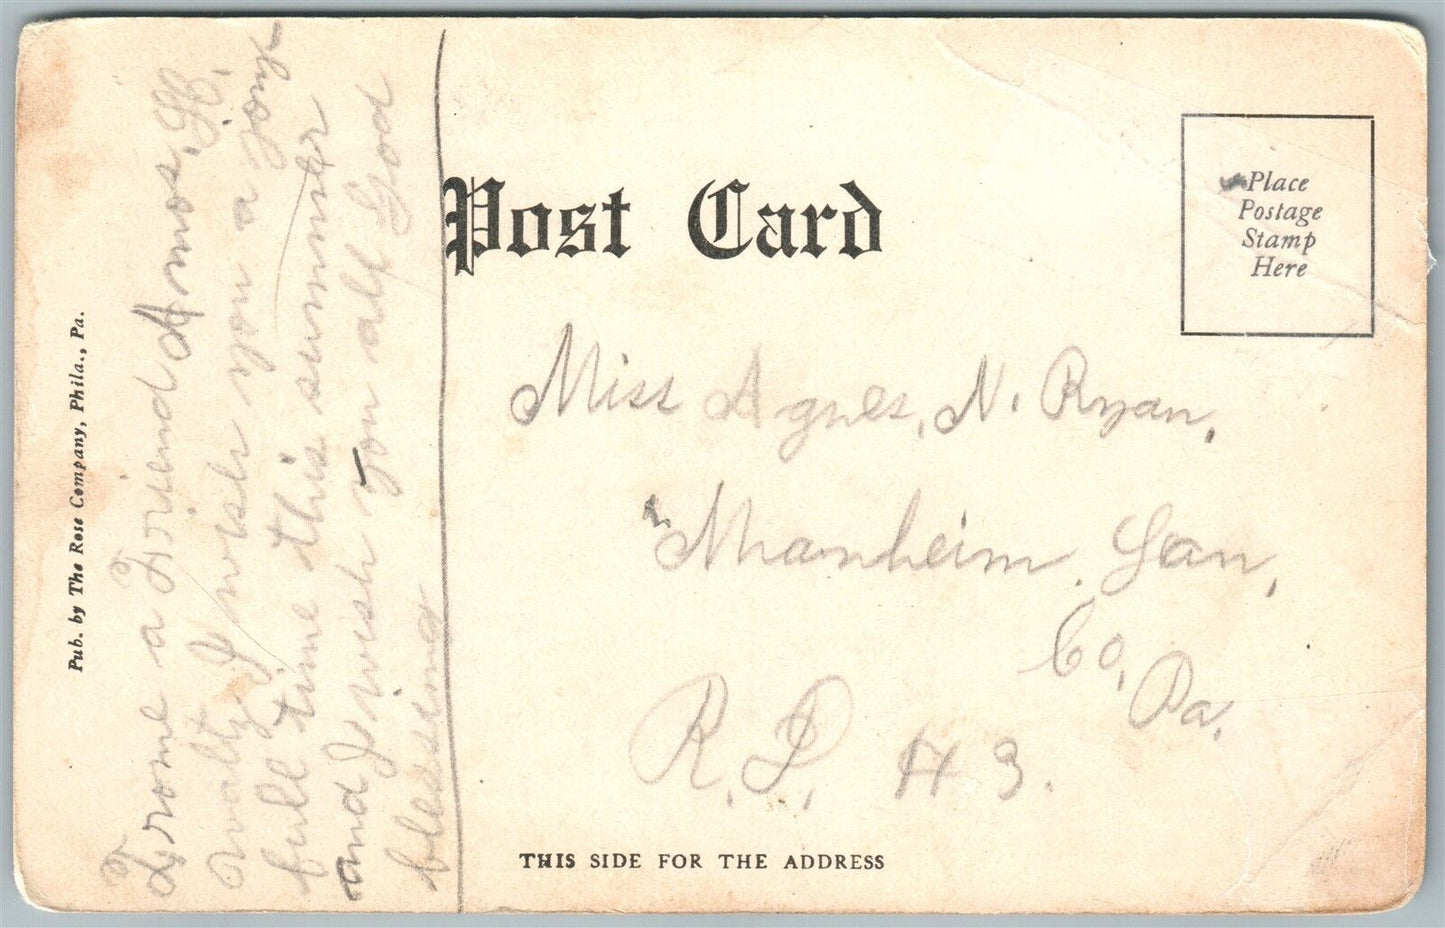 Pub. by The Rose Company, Phila., Pa.
Frome a Friend Amos, H,
I wish you a joy
full time this summer
and I wish you all God
blessing
Post Card
Place
Postage
Stamp
Here
Miss Agnes, N. Ryan,
Manheim. Lan,
Co, Pa,
R. D, # 3.
THIS SIDE FOR THE ADDRESS